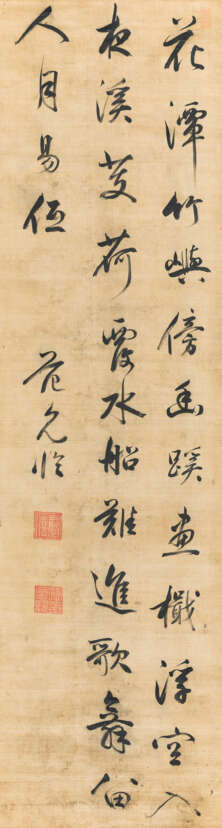 花潭竹嶼傍幽蹊畫檝浮空入
夜溪芰荷覆水船難進歌舞留
人月易低
范允臨